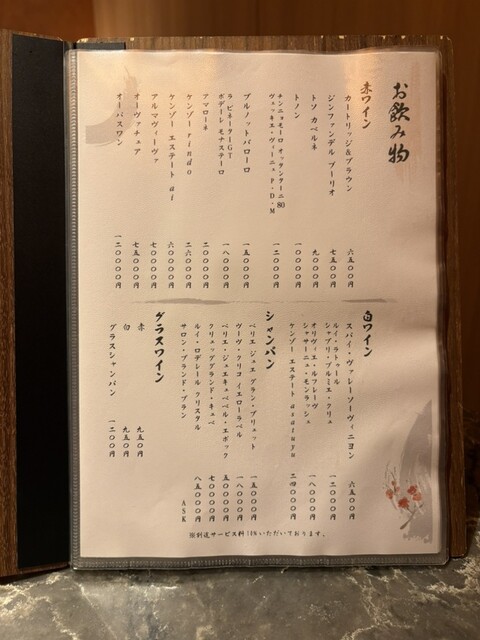 お飲み物
赤ワイン
カートリッジ&ブラウン 六五〇〇円
ジンファンデル ブーリオ 七五〇〇円
トソ カベルネ 九〇〇〇円
トノン 一〇〇〇〇円
チンニョモーロ オッタンターニ80
ヴェッキエ・ヴィーニュ P・D・M 一二〇〇〇円
ブルノットバローロ 一五〇〇〇円
ラピネーターGT
ボデーレ モナステーロ 一八〇〇〇円
アマローネ 二〇〇〇〇円
ケンゾー rindo 二六〇〇〇円
ケンゾー エステート ai 六〇〇〇〇円
アルマヴィーヴァ 七〇〇〇〇円
オーヴァチュア 七五〇〇〇円
オーパスワン 一二〇〇〇〇円
白ワイン
スパイ・ヴァレーソーヴィニヨン 六五〇〇円
ルイ・ラトゥール
シャブリ・プルミエ・クリュ 一二〇〇〇円
オリヴィエ・ルフレーヴ
シャサーニュ・モンラッシェ 一八〇〇〇円
ケンゾー エステート asatsuyu 二四〇〇〇円
シャンパン
ベリエ ジュエ グラン・ブリュット 一五〇〇〇円
ヴーヴ・クリコ イエローラベル 一八〇〇〇円
ベリエ・ジュエキュベベル・エポック 五〇〇〇〇円
クリュッググランド・キュベ 七〇〇〇〇円
ルイ・ロデレール クリスタル 八五〇〇〇円
サロン・ブランド・ブラン ASK
グラスワイン
赤 九五〇円
白 九五〇円
グラスシャンパン 一二〇〇円
※別途サービス料10%いただいております。